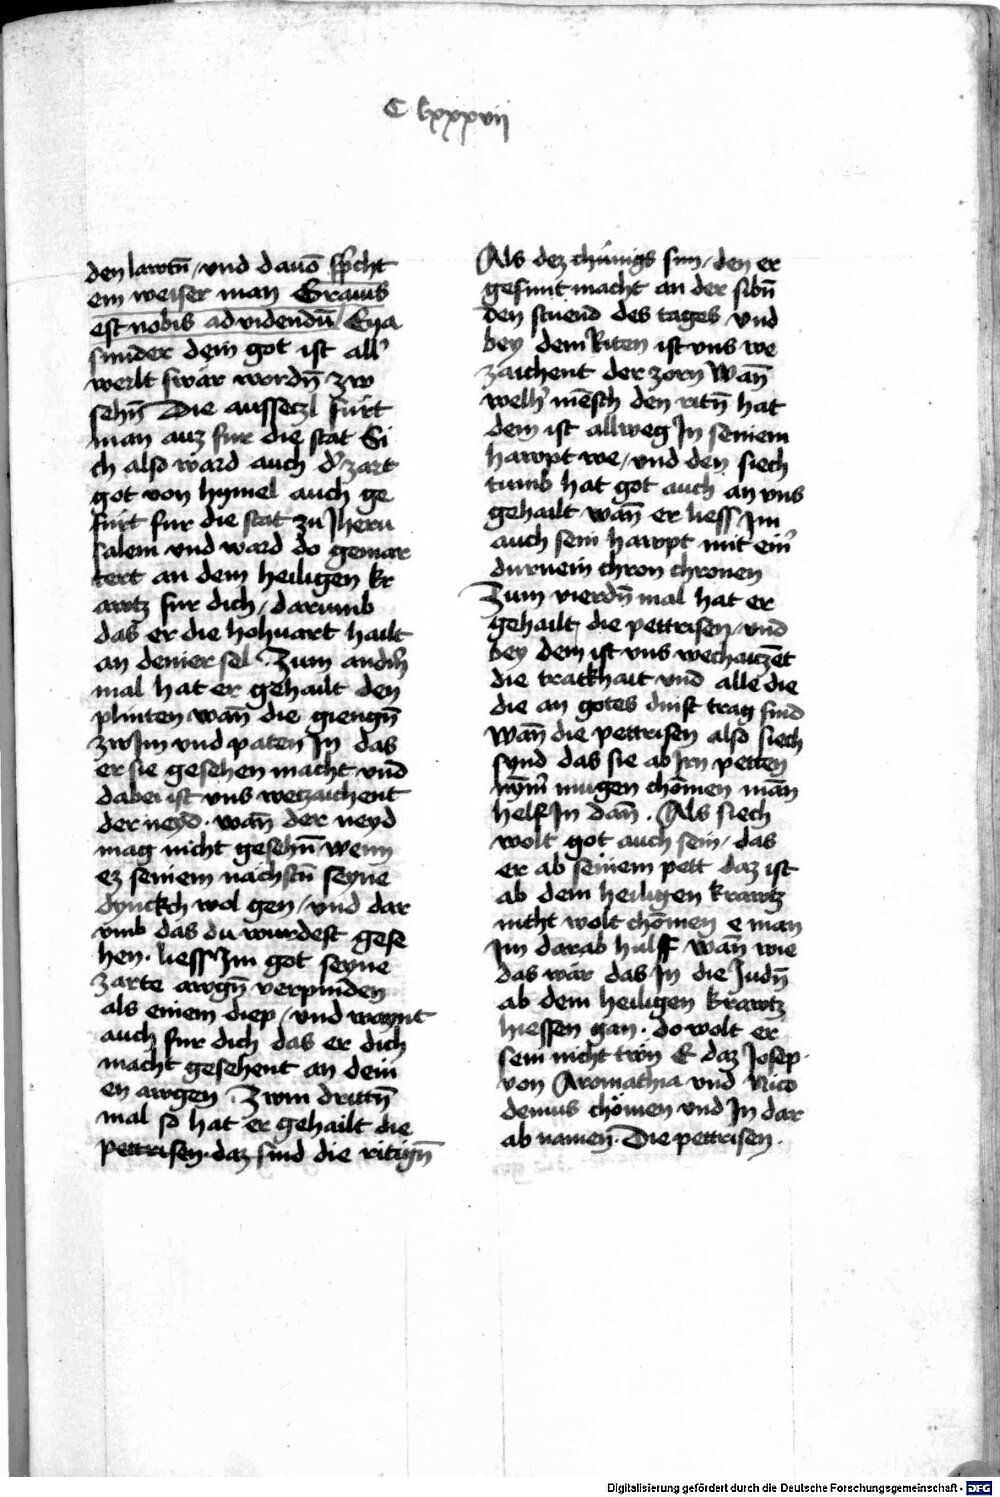 C lxxxvii
den lawtn̄ / vnd dauō spcht
ein weiser man Grauis
est nobis ad videndū / Eya
sunder dem got ist all'
werlt swär wordn̄ zw
sehn̄ Die aussetzl fürt
man auz fur die stat Si
ch also ward auch d' zart
got von hymel auch ge
fürt fur die stat zu Jheru
salem vnd ward do gemar
tert an dem heiligen kr
awtz fur dich / darumb
das er die hohuart hailt
an deiner sel . Zum andn̄
mal hat er gehailt den
plinten wan̄ die giengn̄
zw Im vnd paten In das
er sie gesehen macht vnd
dabei ist vns wetzaichent
der neyd . wan̄ der neyd
mag nicht gesehn̄ wenn
ez seinem nachstn̄ seyne
dynckch wol gen / vnd dar
vmb das du wurdest gese
hen . liess Im got seyne
zarte awgn̄ verpinden
als einem diep / vnd waynt
auch fur dich das er dich
macht gesehent an dein
en awgen . Zwm drittn̄
mal so hat er gehailt die
Pettrisen . daz sind die ritign̄
Als dez chünigs sun / den er
gesunt macht an der sibn̄
den stuend des tages vnd
bey dem Riten ist vns we
zaichent der zorn Wan̄
welh' mēsch den ritn̄ hat
dem ist allweg In seinem
hawpt we / vnd den siech
tumb hat got auch an vns
gehailt wan̄ er liess Im
auch sein hawpt mit ein'
durnein chron chronen
Zum vierdn̄ mal hat er
gehailt die pettrisen / vnd
bey dem ist vns wechaitzēt
die trackhait vnd alle die
die an gotes dinst trag sind
Wan̄ die pettrisen also siech
synd das sie ab irn petten
nym' mugen chömen man
helf In dan̄ . Als siech
wolt got auch sein / das
er ab seinem pett daz ist
ab dem heiligen krawtz
nicht wolt chömen e man
Im darab hulff wan̄ wie
das wär das In die Judn̄
ab dem heiligen krawtz
hiessen gan . do wolt er
sein nicht tün E daz Josep
von Aromathia vnd Nico
demus chömen vnd In dar
ab namen . Die pettrisen .
Digitalisierung gefördert durch die Deutsche Forschungsgemeinschaft - DFG